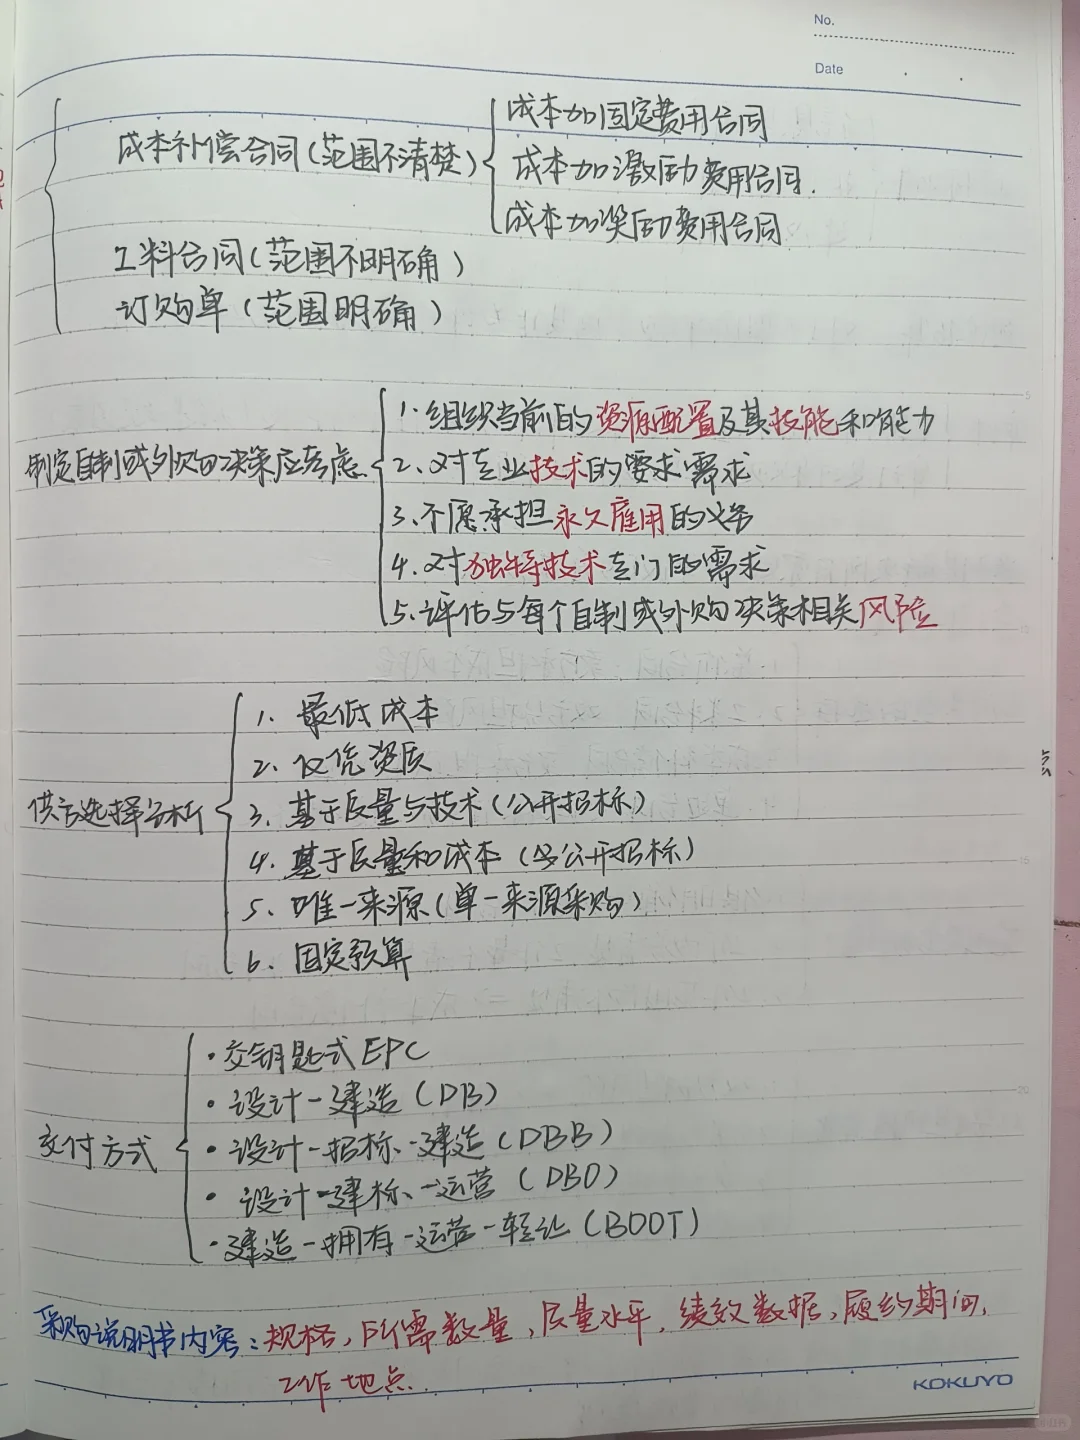 No.
Date
成本补偿合同(范围不清楚)
成本加固定费用合同
成本加激励费用合同.
成本加奖励费用合同
工料合同(范围不明确)
订购单(范围明确)
制定自制或外购决策应考虑
1.组织当前的资源配置及其技能和能力
2.对专业技术的要求需求
3.不愿承担永久雇用的义务
4.对独特技术专门的需求
5.评估与每个自制或外购决策相关风险
供方选择分析
1.最低成本
2.仅凭资质
3.基于质量与技术(公开招标)
4.基于质量和成本(公开招标)
5.唯一来源(单一来源采购)
6.固定预算
交付方式
·交钥匙式EPC
·设计-建造(DB)
·设计-招标-建造(DBB)
·设计-建标-运营(DBO)
·建造-拥有-运营-转让(BOOT)
采购说明书内容:规格,所需数量,质量水平,绩效数据,履约期间,
工作地点.
KOKUYO